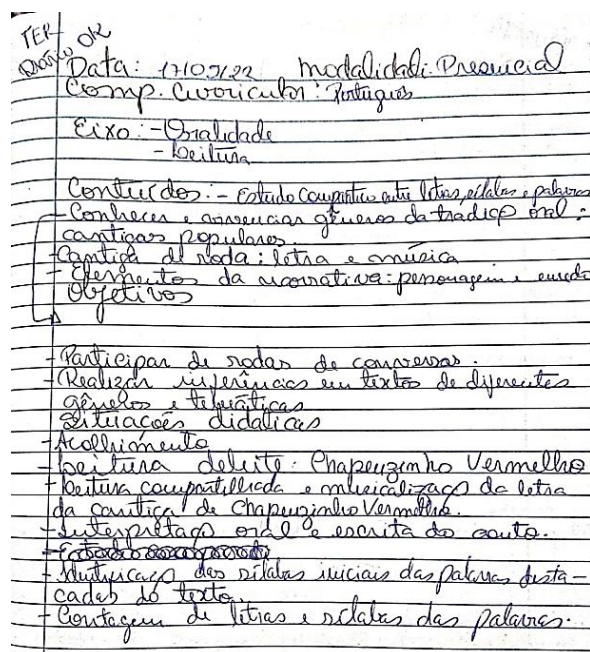 TER
DIÁRIO OK
Data: 17/05/22 Modalidade: Presencial
Comp. Curricular: Português
Eixo: - Oralidade
- Leitura
Conteúdos: - Estudo comparativo entre letras, sílabas e palavras
- Conhecer e vivenciar gêneros da tradição oral:
cantigas populares.
- Cantiga de roda: letra e música
- Elementos da narrativa: personagem e enredo
Objetivos
- Participar de rodas de conversas.
- Realizar inferências em textos de diferentes
gêneros e temáticas
Situações didáticas
- Acolhimento
- Leitura deleite: Chapeuzinho Vermelho
- Leitura compartilhada e musicalização da letra
da cantiga de Chapeuzinho Vermelho.
- Interpretação oral e escrita do conto.
- Identificação das sílabas iniciais das palavras desta-
cadas do texto.
- Contagem de letras e sílabas das palavras.